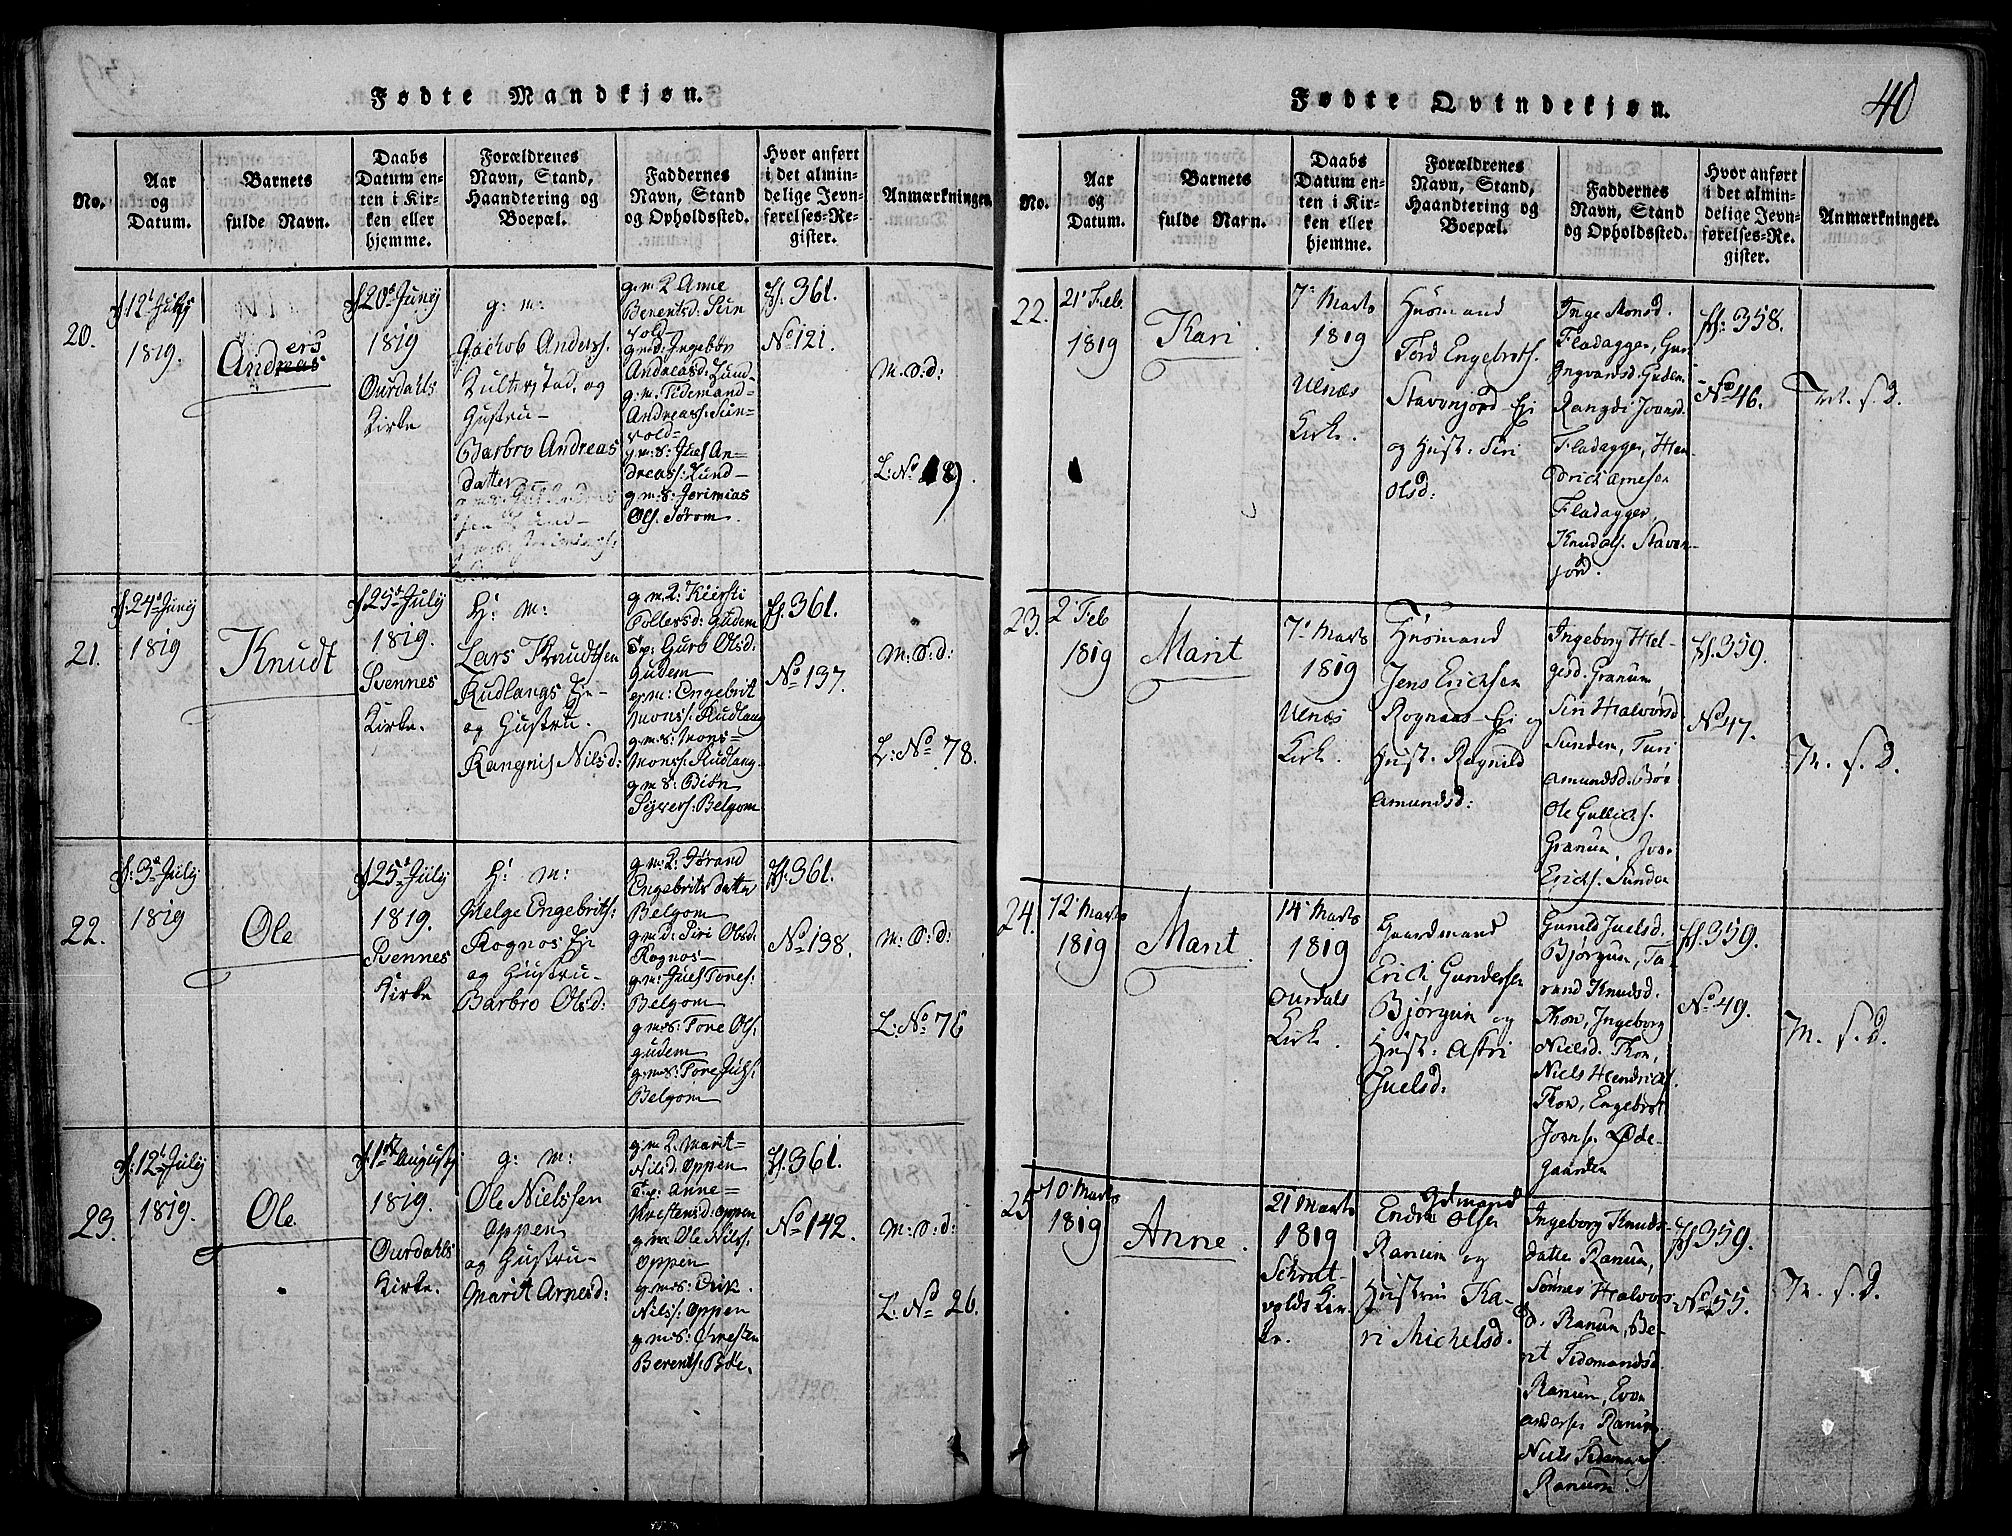 Fødte Mandkjøn.
No.
Aar
og
Datum.
Barnets
fulde Navn.
Daabs
Datum en-
ten i Kir-
ken eller
hjemme.
Forældrenes
Navn, Stand,
Haandtering og
Boepæl.
Faddernes
Navn, Stand
og Opholdssted.
Hvor anført
i det almin-
delige Jevn-
førelses-Re-
gister.
Anmærkninger.
20.
1819.
Anders
20de Juny
1819
Ourdahls
Kirke
g: m:
Jackob Anders:
og
Hustru-
Barbro Andreas
datter
g.m.2 Anne
Berentsd:
Andreasd: Lund-
g:m. Tidemand
Andreas:
dreas: Lund-
g:m:s: Jerimias
Ols:
ff: 361.
No 121.
M:O:d:
L:No
21.
f: 24de Juny
1819
Knudt
f: 25de July
1819.
Svennes
Kirke.
H: m:
Lars Knudtsen
Rudlangs Ei-
og Hustru.
Rangnil Nilsd:
g m.2: Kiersti
Tollersd: Gudem
Tp: Guro Olsd:
Gudem
g:m: Engebrit
Mons: Rudlang
g:m:s: Mons-
Mons: Rudlang
g m s: Biøn
Syvers: Belgom
ff 361.
No 137.
M: O: d:
L: No 78.
22.
f: 3de July
1819
Ole
f: 25de July
1819.
Svennes
Kirke
H: m:
Helge Engebrits:
Rognos Ei-
og Hustru-
Barbro Olsd:
g m.2: Jørand
Engebrits datter
Belgom
g m:d: Siri Olsd:
Rognos-
g:m: Juel Tores:
Belgom
g m:s: Tore Ols:
gudem
g:m:s: Tore Juls:
Belgom
ff: 361.
No 138.
M: O: d:
L: No 76
23.
f: 12t July
1819.
Ole
f: 1st Augusty
1819.
Ourdahls
Kirke.
g: m:
Ole Nielssen
oppen
og Hustru-
Marit Arnesd:
g m 2. Marit-
Nilsd: oppen
Tp: Anne-
Kristensd: oppen
g:m: Ole Nils:
oppen
g:m:s: Erik.
Nils: oppen
g m:s: Cresten
Berents: Bøe.
ff: 361.
No 142.
M: O: d:
L: No 26.
Fødte Qvindekjøn.
40
No.
Aar
og
Datum.
Barnets
fulde Navn.
Daabs
Datum en-
ten i Kir-
ken eller
hjemme.
Forældrenes
Navn, Stand,
Haandtering og
Boepæl.
Faddernes
Navn, Stand
og Opholdssted.
Hvor anført
i det almin-
delige Jevn-
førelses-Re-
gister.
Anmærkninger.
22.
21de Feb
1819
Kari
7de Marts
1819
Ulnæs
Kirk.
Huusmand
Tord Engebrits.
Stavenjord Ei
og Hust. Siri
Olsd:
Inge Monsd.
Fladagger, Gun
Ingvarsd. Guden.
Rangdi Joansd.
Fladagger, Hen-
drich Arnesen
Fladagger,
Knud Ols. Staven-
jord.
ff: 358.
No 46.
M. f. d.
23.
2de Feb
1819
Marit
7de Marts
1819
Ulnæs
Kirk.
Huusmand
Jens Erichsen
Rognaas-Ei og
Hust. Ragnild
Amundsd:
Ingeborg Hel-
gesd. Granum
Siri Halvorsd
Sunden, Turi
Amundsd. Bøe
Ole Gullichs.
Granum, Joen
Erichs. Sunden
ff. 359.
No 47.
M. f. d.
24.
12te Marts
1819
Marit
14de Marts
1819
Ourdals
Kirk.
Gaardmand
Erich Gundersen
Bjørgum og
Hust: Astri
Juelsd.
Gunild Juelsd.
Bjørgum, Tu-
rand Knudsd.
Thon, Ingeborg
Nielsd. Thon,
Niels Hendrichs.
Thon, Engebret
Joens. Øde-
gaarden
ff. 359.
No 49.
M. f. d.
25.
10de Marts
1819
Anne.
21 Marts
1819
Schrut-
volds Kir-
ke.
Gdmand
Endre Olsen
Ranum og
Hustrue Ka-
ri Michelsd.
Ingeborg Knuds-
datter Ranum,
Sønnev Halvors-
d. Ranum, Be-
rit Tidemandsd.
Ranum, Even
Andersen Ranum
Niels Tidemands
Ranum.
ff. 359.
No 55.
M. f. d.